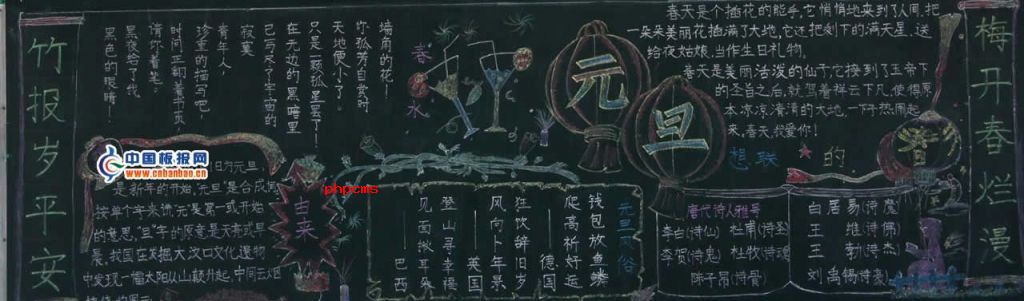 竹报岁平安
梅开春烂漫
墙角的花!
你孤芳自赏时,
天地便小了。
春水
只是一颗孤星罢了!
在无边的黑暗里
己写尽了宇宙的
寂寞
青年人,
珍重的描写吧!
时间正翻着书页,
请你着笔!
黑夜给了我
黑色的眼睛!
元旦
春天是个插花的能手,它悄悄地来到了人间,把
一朵朵美丽花插满了大地,它还把剩下的满天星,送
给夜姑娘,当作生日礼物。
春天是美丽活泼的仙子,它接到了玉帝下
的圣旨之后,就驾着祥云下凡,使得原
本凉凉清清的大地,一下子热闹起
来,春天,我爱你!
中国板报网
www.cnbanbao.cn
旧为元旦,
是新年的开始,"元旦"是合成词
按单个字来讲,"元"是第一或开始
的意思,"旦"字的原意是天亮或早
晨,我国在发掘大汶口文化遗物
中发现一幅太阳从山颠升起,中间云烟
由来
phpcms
元旦风俗
钱包放鱼鳞
爬高祈好运
——德国
狂饮辞旧岁
风向卜年景
——英国
登山寻幸福
见面揪耳朵
——巴西
想联的
唐代诗人雅号
李白(诗仙) 杜甫(诗圣)
李贺(诗鬼) 杜牧(诗魂)
陈子昂(诗骨)
白居易(诗魔)
王维(诗佛)
王勃(诗杰)
刘禹锡(诗豪)
春